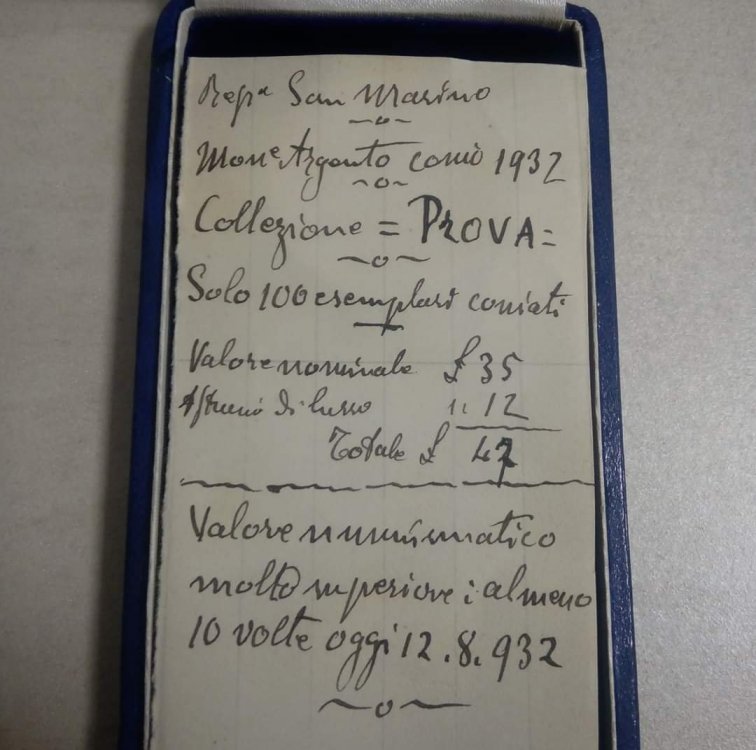 Repª San Marino
Monᵉ Argento conio 1932
Collezione = PROVA =
Solo 100 esemplari coniati
Valore nominale £ 35
Astuccio di lusso " 12
Totale £ 47
Valore numismatico
molto superiore : almeno
10 volte oggi 12.8.932